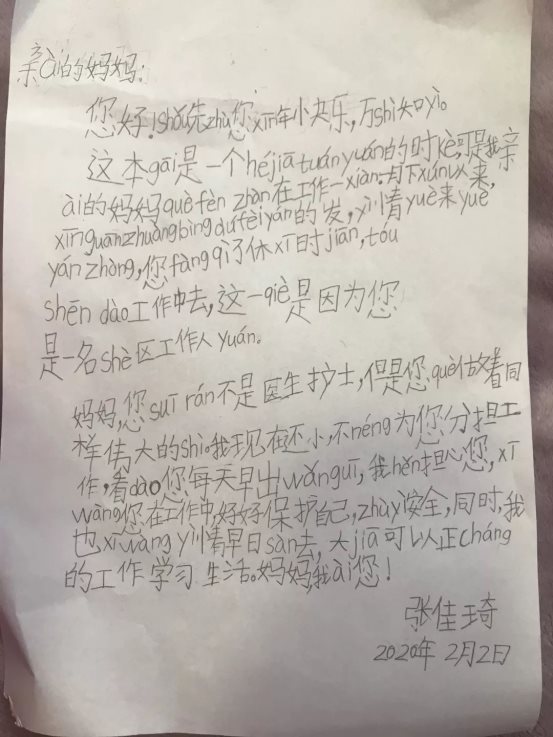 亲ài的妈妈:
您好!shǒu先zhù您xīn年小央乐,万shì如yì。
这本gāi是一个héjiātuányuán的时kè,可是我亲
ài的妈妈què fèn zhàn在工作一xiàn.
xīnguānzhuàngbìngdúfèiyán的发,yì情yuè来yuè
yánzhòng,您fàng qì了休xī时jiān,tóu
shēn dào工作中去,这一qiè是因为您
是一名shè区工作人yuán。
妈妈,您suī rán不是医生护士,但是您què做着同
样伟大的shì。我现在还小,不néng为您分担工
作,看dào您每天早出wǎnguī,我hěn担心您,xī
wàng您在工作中,好好保护自己,zhùyì安全,同时,我
也xīwàng yì情早日sàn去,大jiā可以正cháng
的工作学习生活。妈妈,我ài您!
张佳琦
2020年2月2日